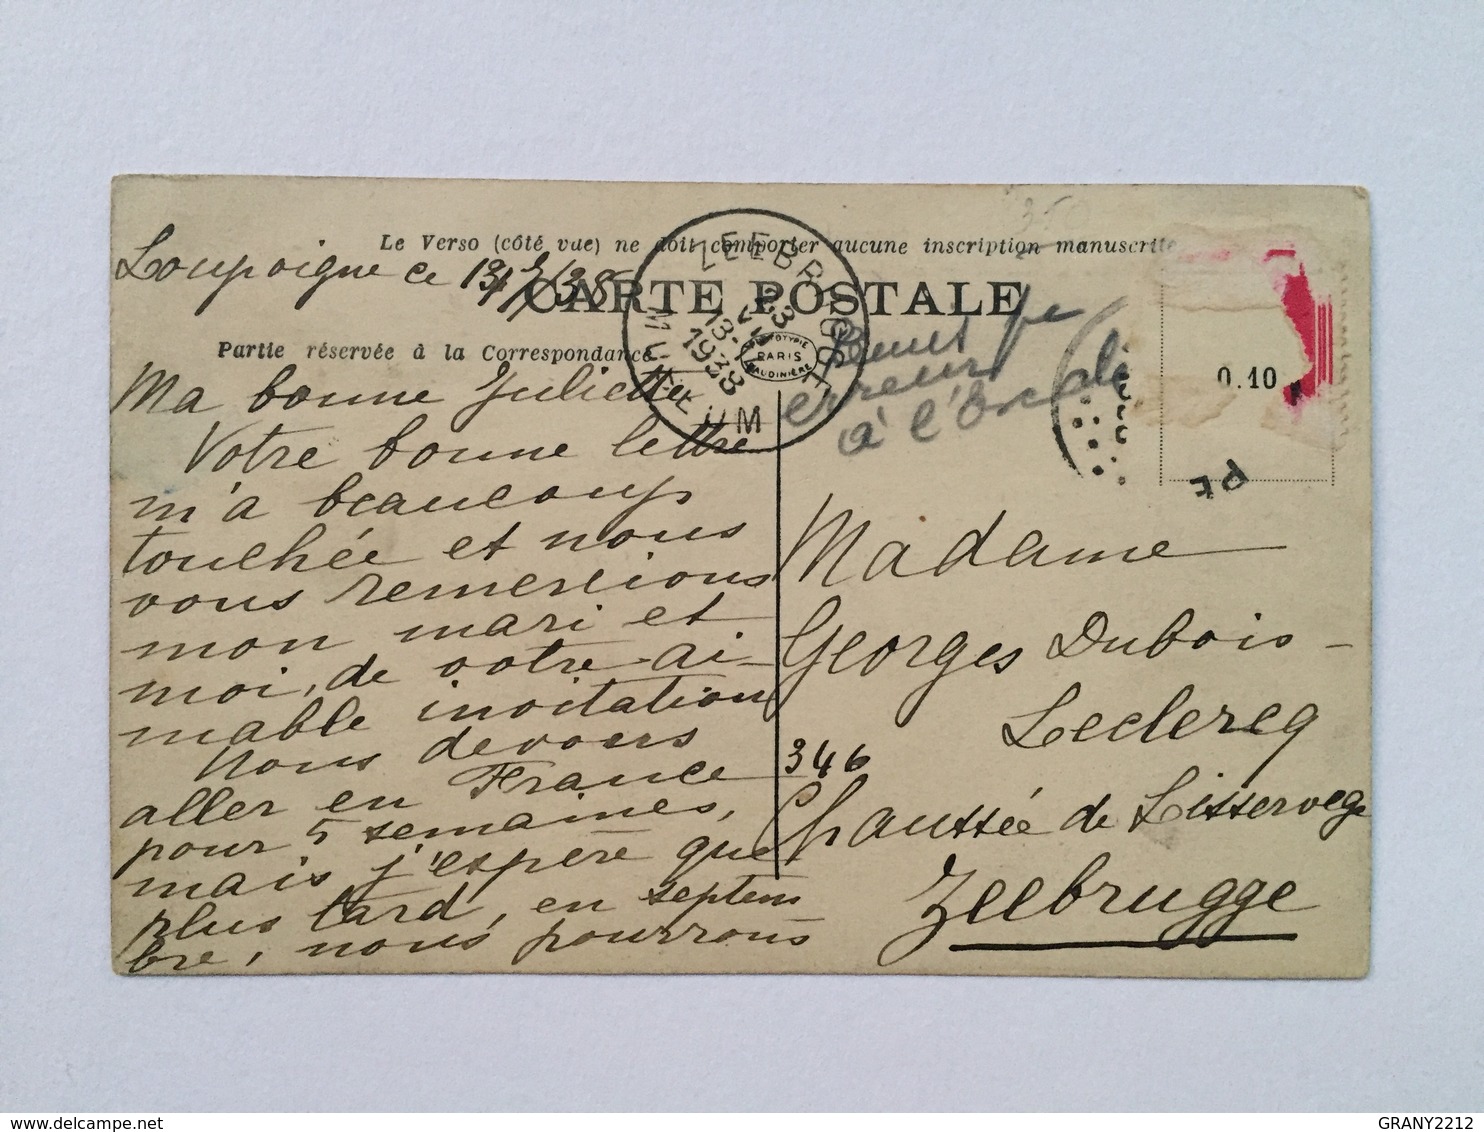 Le Verso (côté vue) ne doit comporter aucune inscription manuscrite
Loupoigne ce
CARTE POSTALE
Partie réservée à la Correspondance
ZEEBRUGGE
MUSEUM
1938
PHOTOTYPIE
PARIS
BAUDINIÈRE
erreur
à l'
0.10
PE
Ma bonne Juliette
Votre bonne lettre
m'a beaucoup
touchée et nous
vous remercions
mon mari et
moi, de votre ai-
mable invitation
Nous devons
aller en France
pour 5 semaines,
mais j'espère que
plus tard, en septem
bre, nous pourrons
Madame
Georges Dubois-
Leclercq
346
Chaussée de Lissewege
Zeebrugge
GRANY2212